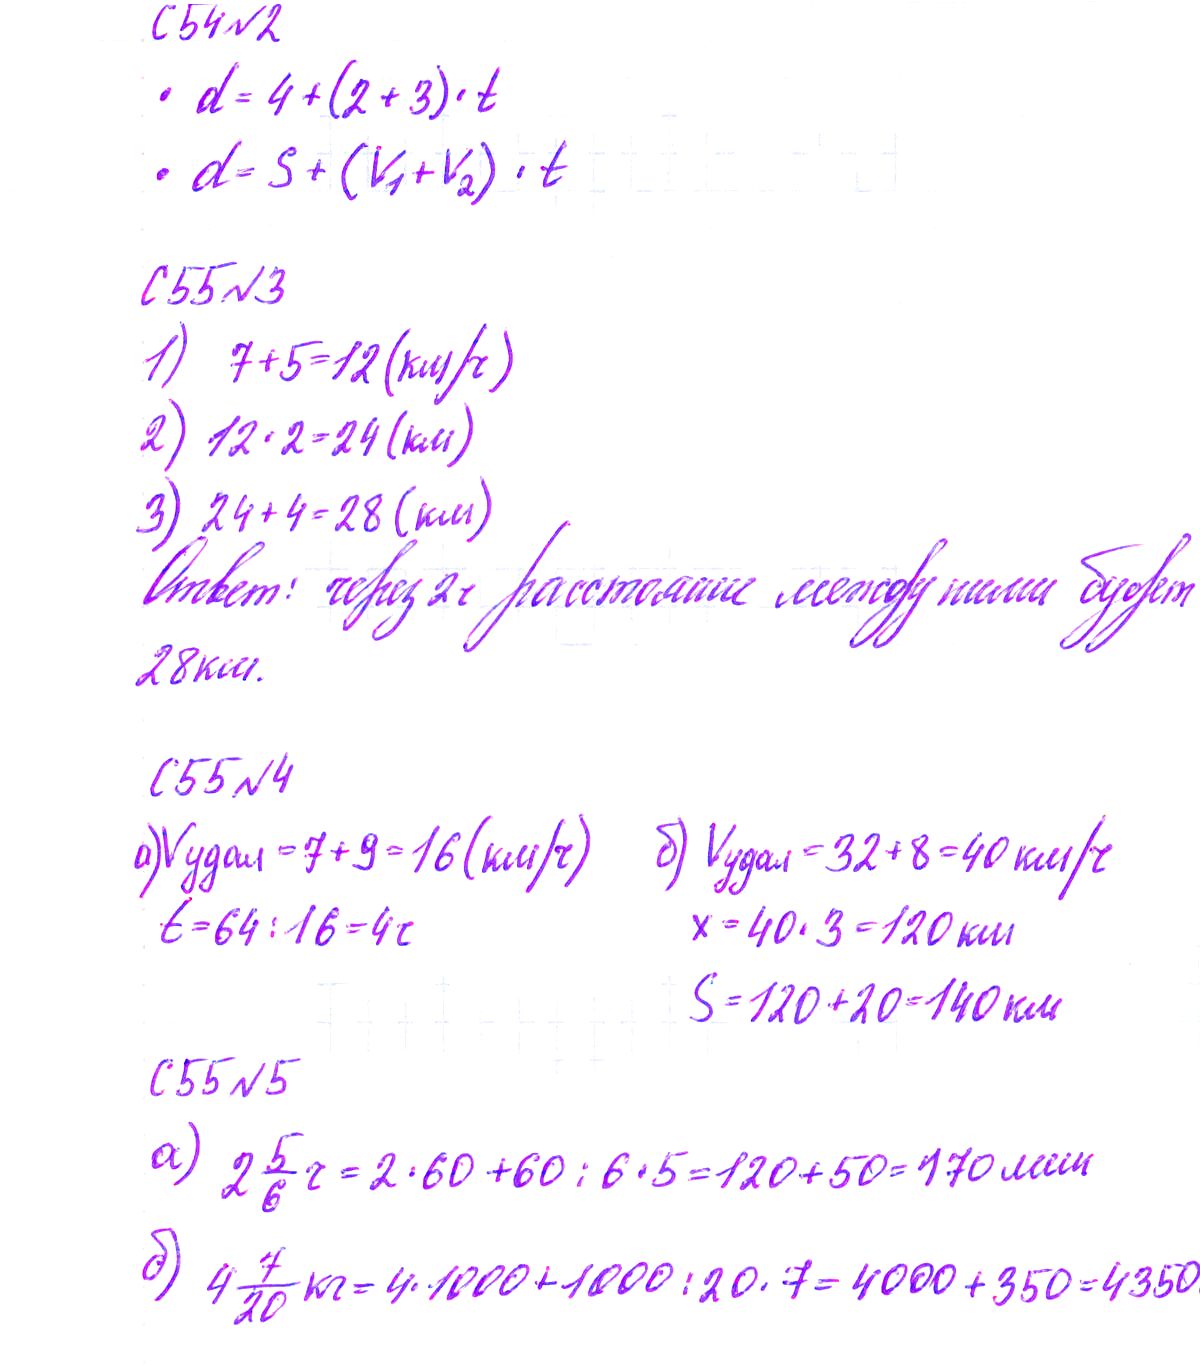 С54№2
• d = 4 + (2 + 3) · t
• d = S + (V₁ + V₂) · t
С55№3
1) 7 + 5 = 12 (км/ч)
2) 12 · 2 = 24 (км)
3) 24 + 4 = 28 (км)
Ответ: через 2ч расстояние между ними будет
28км.
С55№4
а) Vудал = 7 + 9 = 16 (км/ч) б) Vудал = 32 + 8 = 40 км/ч
t = 64 : 16 = 4ч x = 40 · 3 = 120 км
S = 120 + 20 = 140 км
С55№5
а) 2 5/6 ч = 2 · 60 + 60 : 6 · 5 = 120 + 50 = 170 мин
б) 4 7/20 кг = 4 · 1000 + 1000 : 20 · 7 = 4000 + 350 = 4350